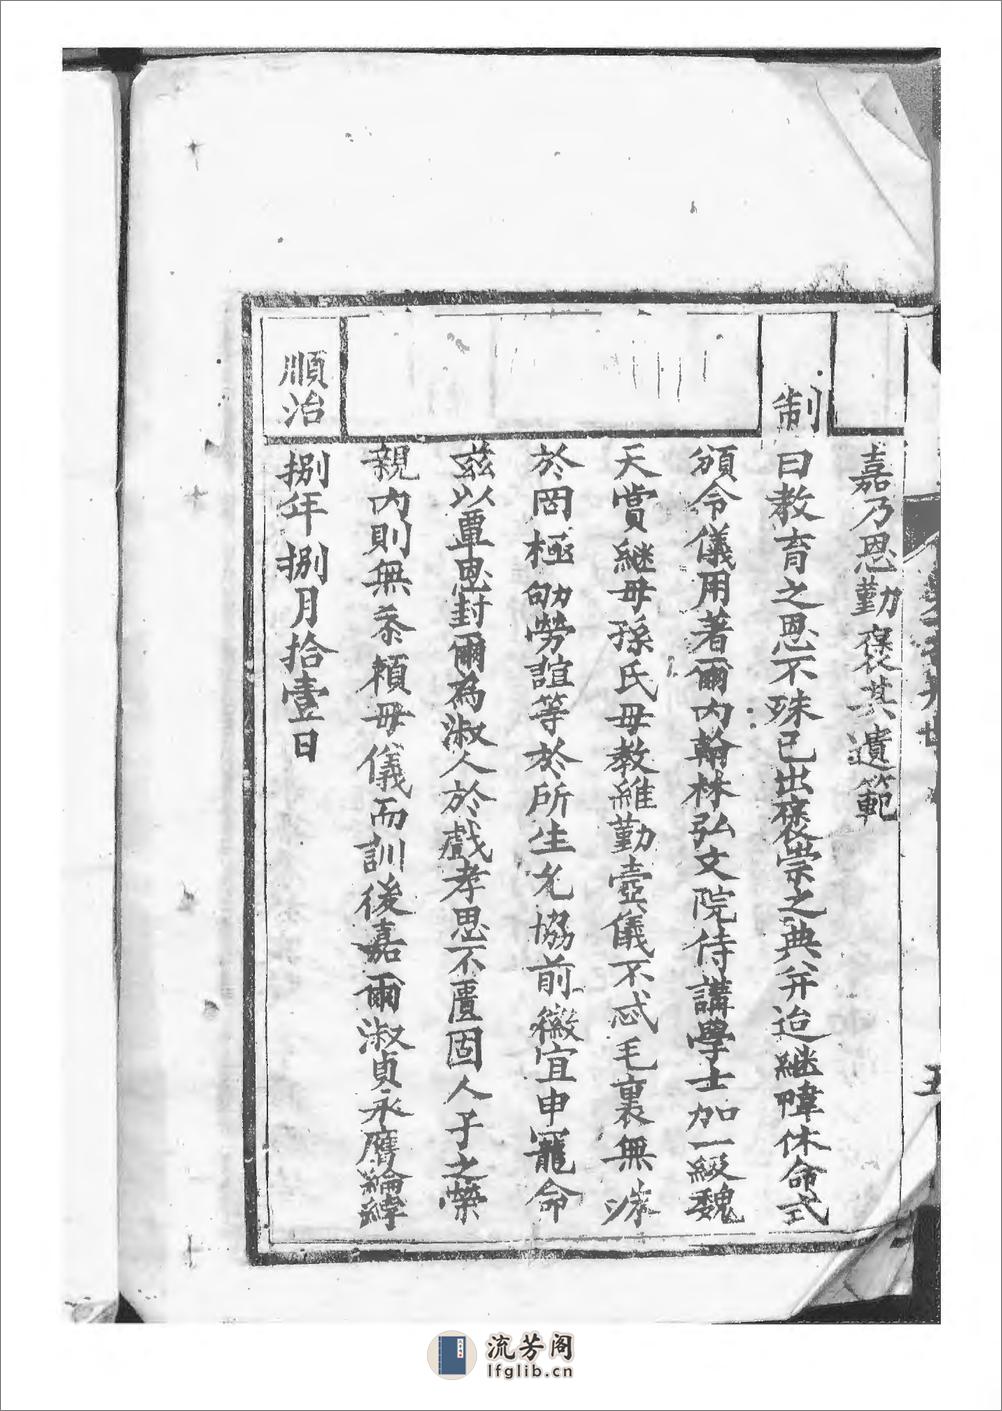 嘉乃恩勤褒其遺範
制曰教育之恩不殊已出褒崇之典并迨継幃休命式
頒令儀用著爾内翰林弘文院侍講學士加一級魏
天賞継母孫氏母教維勤壼儀不忒毛裏無
於罔極劬勞誼等於所生允協前徽宜申寵命
茲以覃恩封爾為淑人於戲孝思不匱固人子之榮
親内則無忝頼母儀而訓後嘉爾淑貞永膺綸綍
順治捌年捌月拾壹日
流芳阁
lfglib.cn